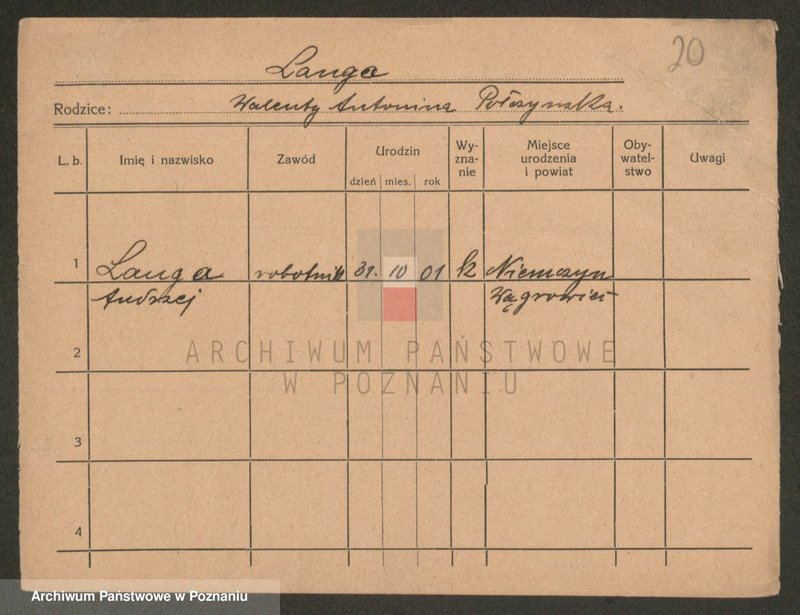 20
Langa
Rodzice: Walenty Antonina Połczynska.
L. b. Imię i nazwisko Zawód Urodzin dzień mies. rok Wy-zna-nie Miejsce urodzenia i powiat Oby-watel-stwo Uwagi
1 Langa robotnik 31. 10 01 k Niemczyn
Andrzej Wągrowiec
2
ARCHIWUM PAŃSTWOWE
W POZNANIU
3
4
Archiwum Państwowe w Poznaniu